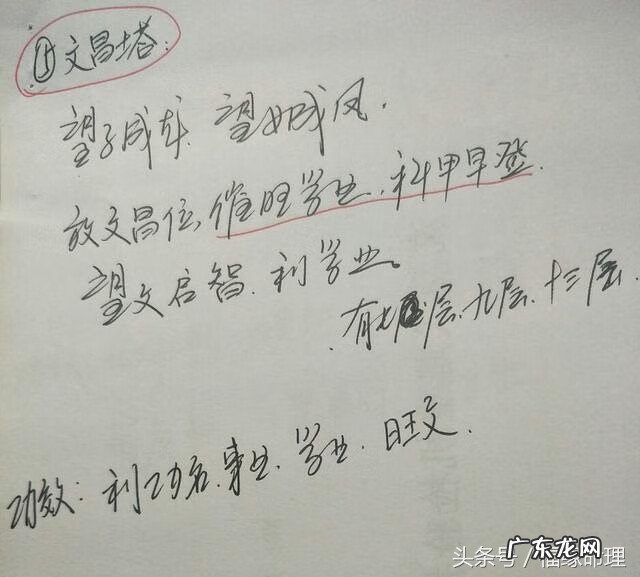 ⑤文昌塔:
望子成龙 望女成凤.
放文昌位,催旺学业,科甲早登.
望文启智.利学业。
有七层.九层.十三层.
功效:利功名.事业.学业.旺文.
头条号/福缘命理
广东龙网